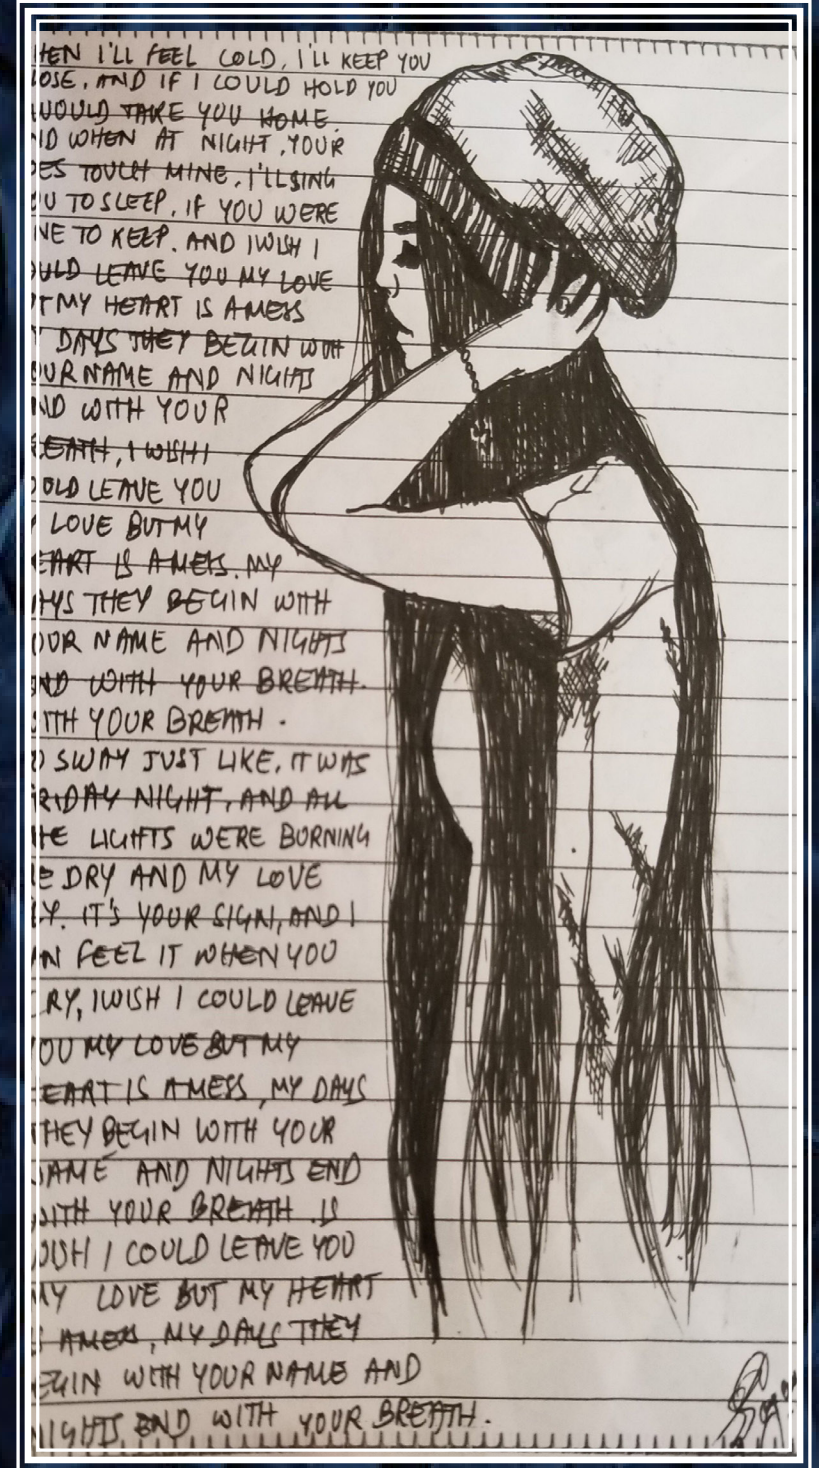 HEN I'LL FEEL COLD, I'LL KEEP YOU
LOSE, AND IF I COULD HOLD YOU
WOULD TAKE YOU HOME.
ND WHEN AT NIGHT, YOUR
ES TOUCH MINE, I'LL SING
OU TO SLEEP, IF YOU WERE
NE TO KEEP. AND I WISH I
OULD LEAVE YOU MY LOVE
UT MY HEART IS A MESS
Y DAYS THEY BEGIN WITH
OUR NAME AND NIGHTS
ND WITH YOUR
REATH, I WISH I
OULD LEAVE YOU
Y LOVE BUT MY
EART IS A MESS. MY
AYS THEY BEGIN WITH
OUR NAME AND NIGHTS
END WITH YOUR BREATH.
WITH YOUR BREATH.
O SWAY JUST LIKE, IT WAS
FRIDAY NIGHT, AND ALL
HE LIGHTS WERE BURNING
E DRY AND MY LOVE
LY. IT'S YOUR SIGN, AND I
AN FEEL IT WHEN YOU
CRY, I WISH I COULD LEAVE
YOU MY LOVE BUT MY
EART IS A MESS, MY DAYS
THEY BEGIN WITH YOUR
NAME AND NIGHTS END
WITH YOUR BREATH. IS
WISH I COULD LEAVE YOU
MY LOVE BUT MY HEART
S A MESS, MY DAYS THEY
EGIN WITH YOUR NAME AND
NIGHTS END WITH YOUR BREATH.